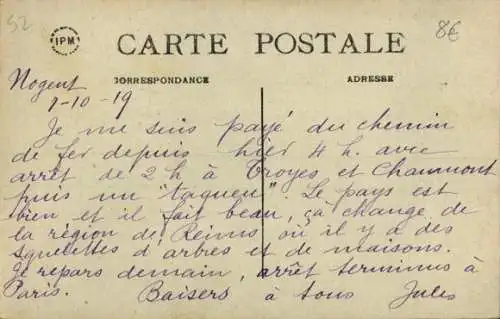 52
IPM
8€
CARTE POSTALE
CORRESPONDANCE
ADRESSE
Nogent
1-10-19
Je me suis payé du chemin
de fer depuis hier 4 h. avec
arrêt de 2 h à Troyes et Chaumont
puis un "taqueu". Le pays est
bien et il fait beau, ça change de
la région de Reims où il y a des
squelettes d'arbres et de maisons.
Je repars demain, arrêt terminus à
Paris. Baisers à tous Jules